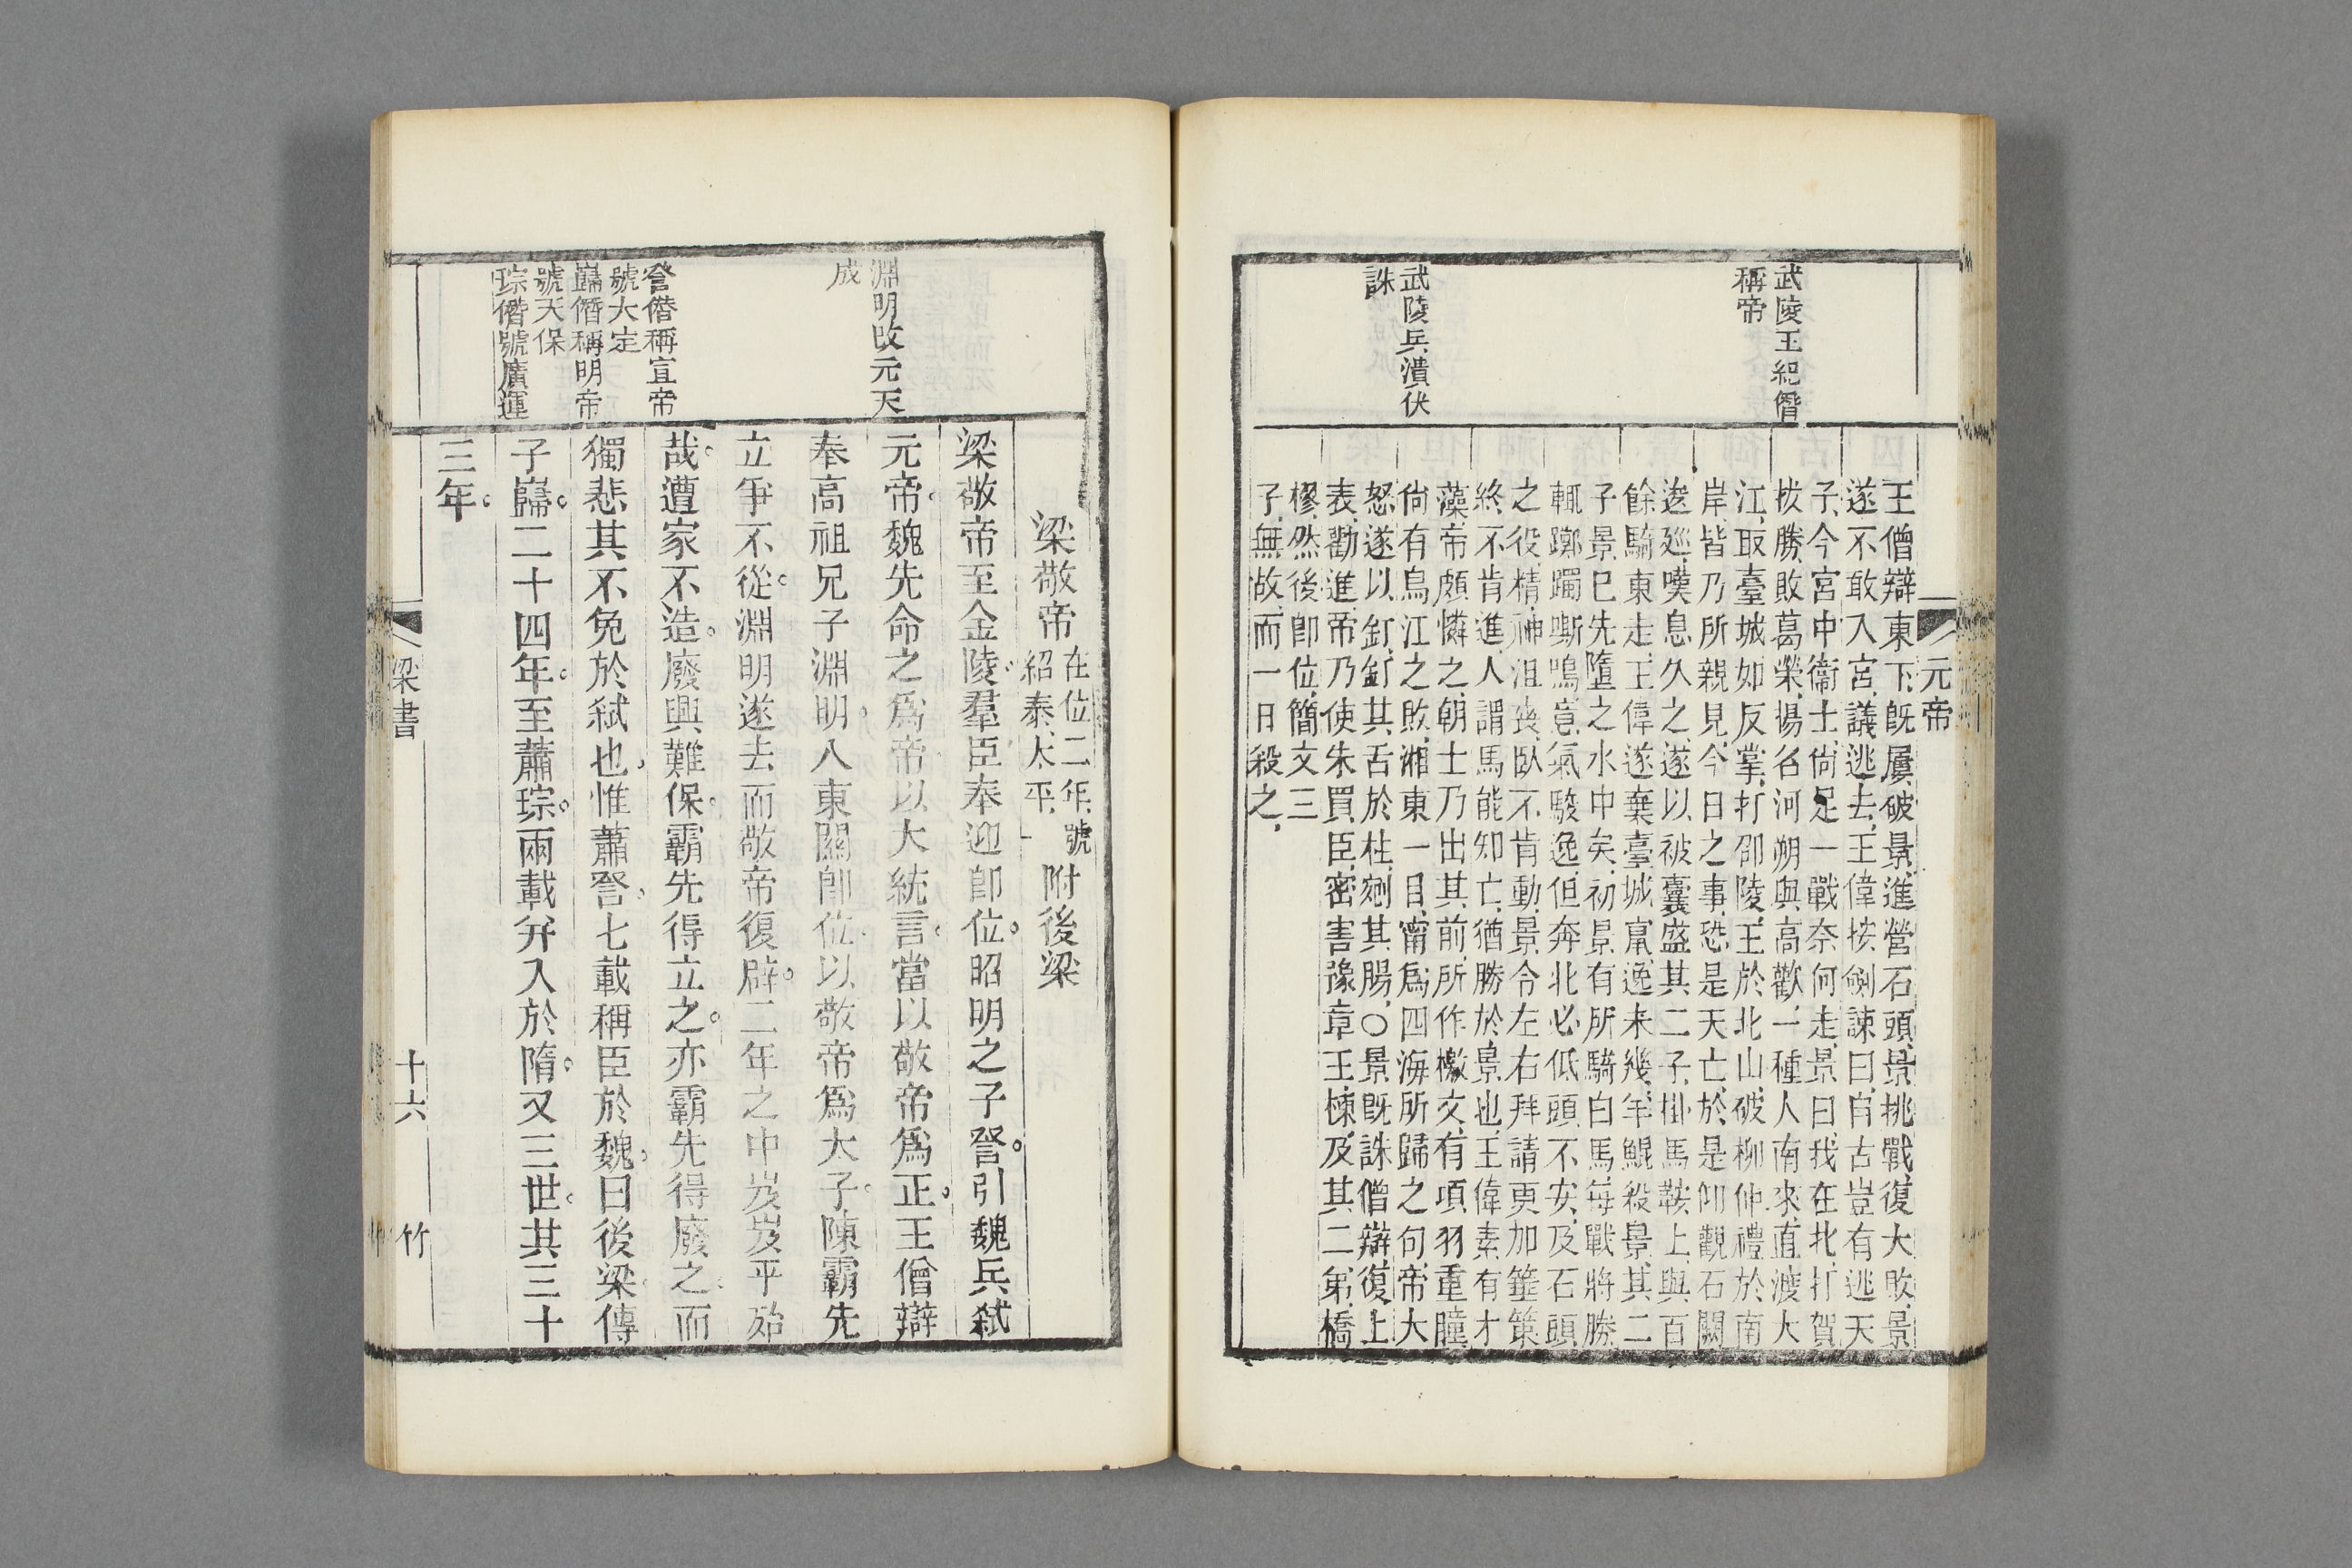 元帝
武陵王紀僭
稱帝
武陵兵潰伏
誅
王僧辯東下、旣屢破景、進營石頭、景挑戰、復大敗、景
遂不敢入宮、議逃去、王偉按劍諫曰、自古豈有逃天
子、今宮中衞士、尙足一戰、奈何走、景曰、我在北、打賀
拔勝、敗葛榮、揚名河朔、與高歡、一種人、南來、直渡大
江、取臺城如反掌、打邵陵王於北山、破柳仲禮於南
岸、皆乃所親見、今日之事、恐是天亡、於是仰觀石闕
逡廵、嘆息久之、遂以被囊盛其二子、掛馬鞍上、與百
餘騎東走、王偉遂棄臺城、竄逸、未幾、羊鯤殺景、其二
子景已先墮之水中矣、初景有所騎白馬、每戰將勝、
輒躑躅嘶鳴、意氣駿逸、但奔北必低頭不安、及石頭
之役、精神沮喪、臥不肯動、景令左右拜請、更加箠策
終不肯進、人謂馬能知亡、猶勝於景也、王偉素有才
藻、帝頗憐之、朝士乃出其前所作檄文、有項羽重瞳
尙有烏江之敗、湘東一目、甯爲四海所歸之句、帝大
怒、遂以釘釘其舌於柱、剜其腸、○景旣誅、僧辯復上
表、勸進、帝乃使朱買臣、密害豫章王棟、及其二弟、橋
樛、然後卽位、簡文三
子、無故、而一日殺之、
淵明改元天
成
詧僭稱宣帝
號大定
巋僭稱明帝
號天保
琮僭號廣運
梁敬帝在位二年、號紹泰、太平、附後梁
梁敬帝至金陵。羣臣奉迎卽位。昭明之子詧。引魏兵弒
元帝。魏先命之爲帝以大統言。當以敬帝爲正。王僧辯
奉高祖兄子淵明。入東關卽位。以敬帝爲太子。陳霸先
立爭不從。淵明遂去而敬帝復辟。二年之中岌岌乎殆
哉。遭家不造。廢興難保。霸先得立之。亦霸先得廢之。而
獨悲其不免於弒也。惟蕭詧。七載稱臣於魏。曰後梁。傳
子巋。二十四年。至蕭琮。兩載幷入於隋。又三世。其三十
三年。
梁書
十六
竹